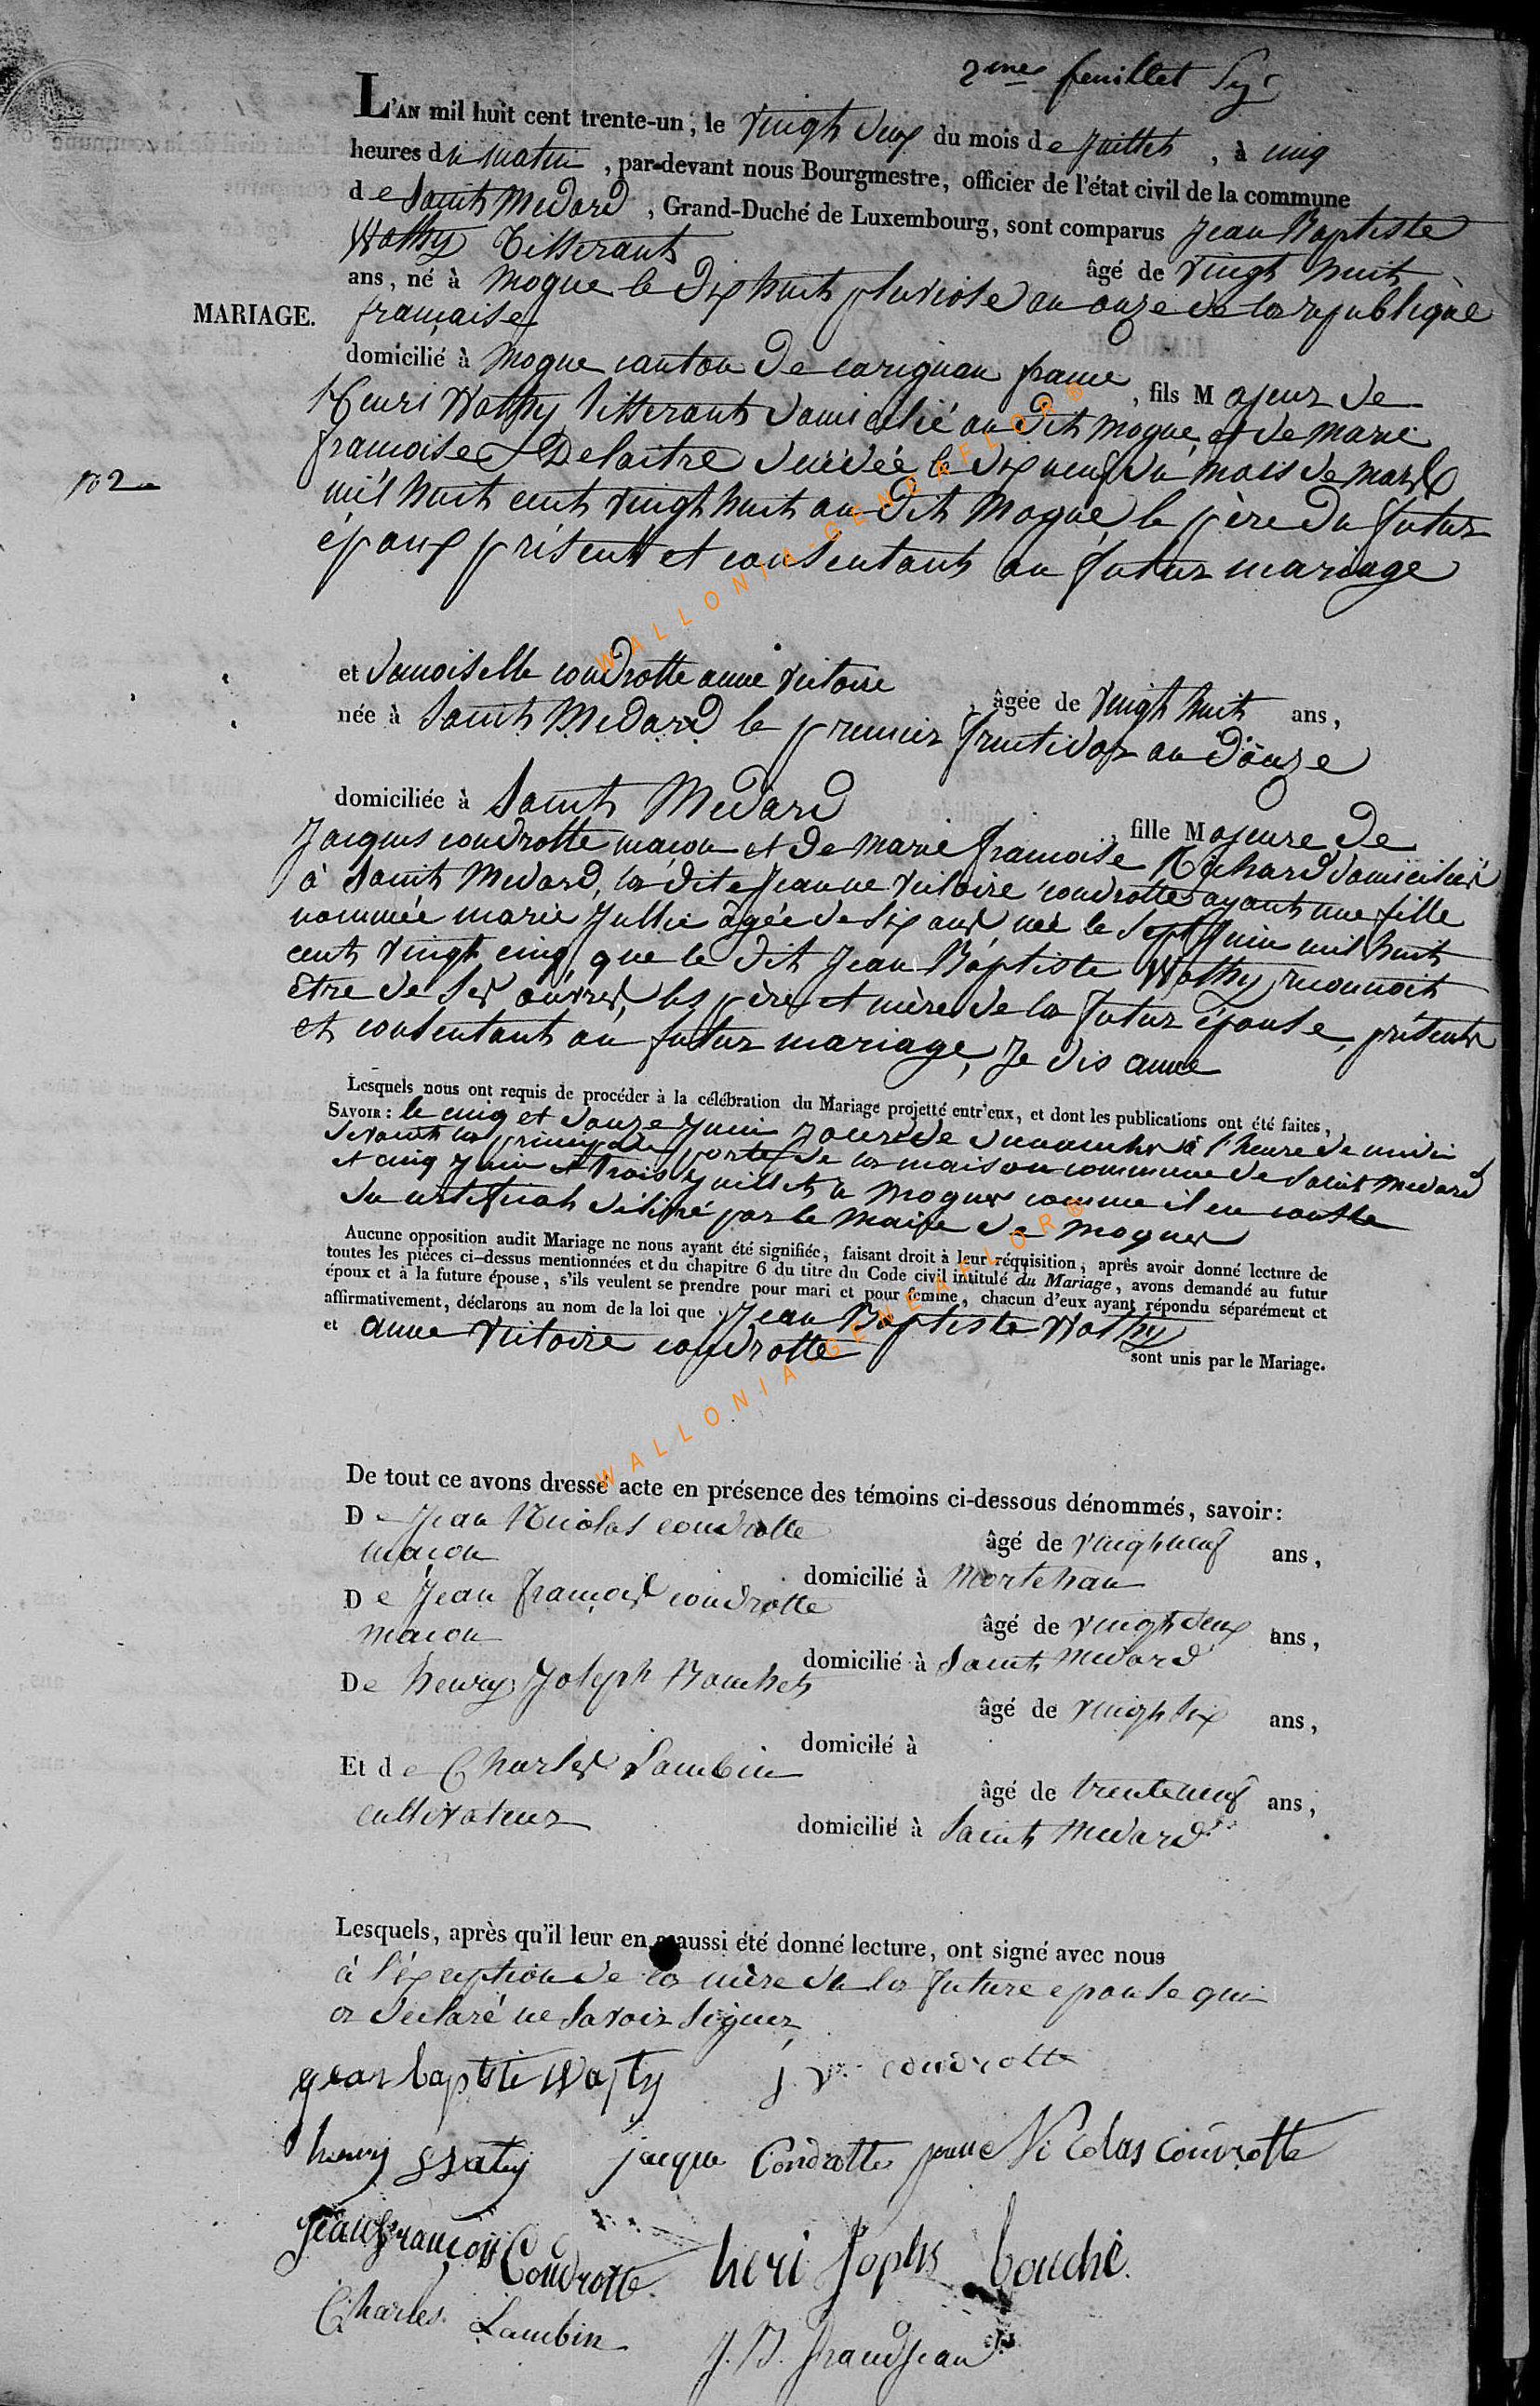 2me feuillet
L'AN mil huit cent trente-un, le vingt deux du mois de juillet, à cinq
heures du matin, par-devant nous Bourgmestre, officier de l'état civil de la commune
de Saint Medard, Grand-Duché de Luxembourg, sont comparus Jean Baptiste
Wathy Titterant âgé de vingt huit
ans, né à Mogue le dix huit pluviose an onze de la republique
MARIAGE. francaise
domicilié à Mogue canton de carignan france, fils Majeur de
Henri Wathy titterant domicilié au dit Mogue, et de marie
francoise Delaitre décédée le dix neuf du mois de mars
n° 2
mil huit cent vingt huit au dit Mogue, le père du futur
époux présent et consentant au futur mariage
et damoiselle condrotte anne victoire, âgée de vingt huit ans,
née à Saint Medard le premier fructidor an douze
domiciliée à Saint Medard, fille Majeure de
Jacques condrotte macon et de marie francoise Richard domiciliés
à Saint Medard, la dite Jeanne victoire condrotte ayant une fille
nommée marie Jullie âgée de six ans née le sept juin mil huit
cent vingt cinq que le dit Jean Baptiste Wathy reconnoit
être de ses œuvres, les père et mère de la futur épouse, présents
et consentant au futur mariage, Je dis anne
Lesquels nous ont requis de procéder à la célébration du Mariage projetté entr'eux, et dont les publications ont été faites,
SAVOIR: le cinq et douze juin jours de dimanches à l'heure de midi
devant la principale porte de la maison commune de Saint Medard
et cinq juin et trois juillet à Mogues comme il en conste
du certificat délivré par le Maire de Mogues
Aucune opposition audit Mariage ne nous ayant été signifiée, faisant droit à leur réquisition, après avoir donné lecture de
toutes les pièces ci-dessus mentionnées et du chapitre 6 du titre du Code civil intitulé du Mariage, avons demandé au futur
époux et à la future épouse, s'ils veulent se prendre pour mari et pour femme, chacun d'eux ayant répondu séparément et
affirmativement, déclarons au nom de la loi que Jean Baptiste Wathy
et anne victoire condrotte sont unis par le Mariage.
De tout ce avons dressé acte en présence des témoins ci-dessous dénommés, savoir:
De Jean Nicolas condrotte âgé de vingt neuf ans,
macon domicilié à Mortehan
De Jean francois condrotte âgé de vingt deux ans,
macon domicilié à Saint Medard
De henry Joseph Bouchet âgé de vingt six ans,
domicilé à
Et de Charles Lambin âgé de trente neuf ans,
cultivateur domicilié à Saint Medard
Lesquels, après qu'il leur en a aussi été donné lecture, ont signé avec nous
à l'exception de la mère de la future epouse qui
a declaré ne savoir signer
jean baptiste Waty j. v. condrotte
henry Waty jacque Condrotte jeane Nicolas condrotte
jean francois Condrotte heri Jophs bouche.
Charles Lambin J. B. Grandjean
WALLONIA-GENEAFLOR®
WALLONIA-GENEAFLOR®